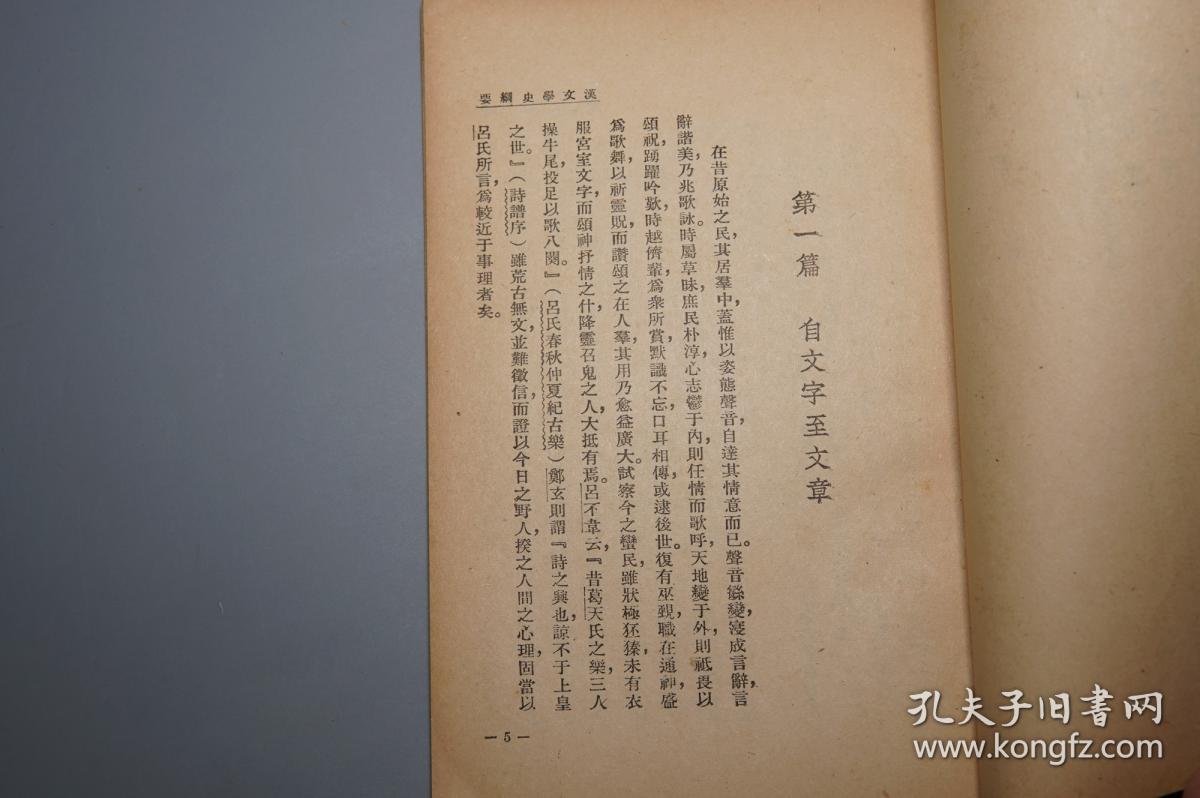 漢文學史綱要
第一篇　自文字至文章
在昔原始之民，其居羣中，蓋惟以姿態聲音，自達其情意而已。聲音繇變，寖成言辭，言
辭諧美，乃兆歌詠。時屬草昧，庶民朴淳，心志鬱于內，則任情而歌呼，天地變于外，則祗畏以
頌祝，踴躍吟歎，時越儕輩，爲衆所賞，默識不忘，口耳相傳，或逮後世。復有巫覡，職在通神，盛
爲歌舞，以祈靈貺，而讚頌之在人羣，其用乃愈益廣大。試察今之蠻民，雖狀極狉獉，未有衣
服宮室文字，而頌神抒情之什，降靈召鬼之人，大抵有焉。呂不韋云，『昔葛天氏之樂，三人
操牛尾，投足以歌八闋。』（呂氏春秋仲夏紀古樂）鄭玄則謂『詩之興也，諒不于上皇
之世。』（詩譜序）雖荒古無文，並難徵信，而證以今日之野人，揆之人間之心理，固當以
呂氏所言，爲較近于事理者矣。
— 5 —
孔夫子旧书网
www.kongfz.com